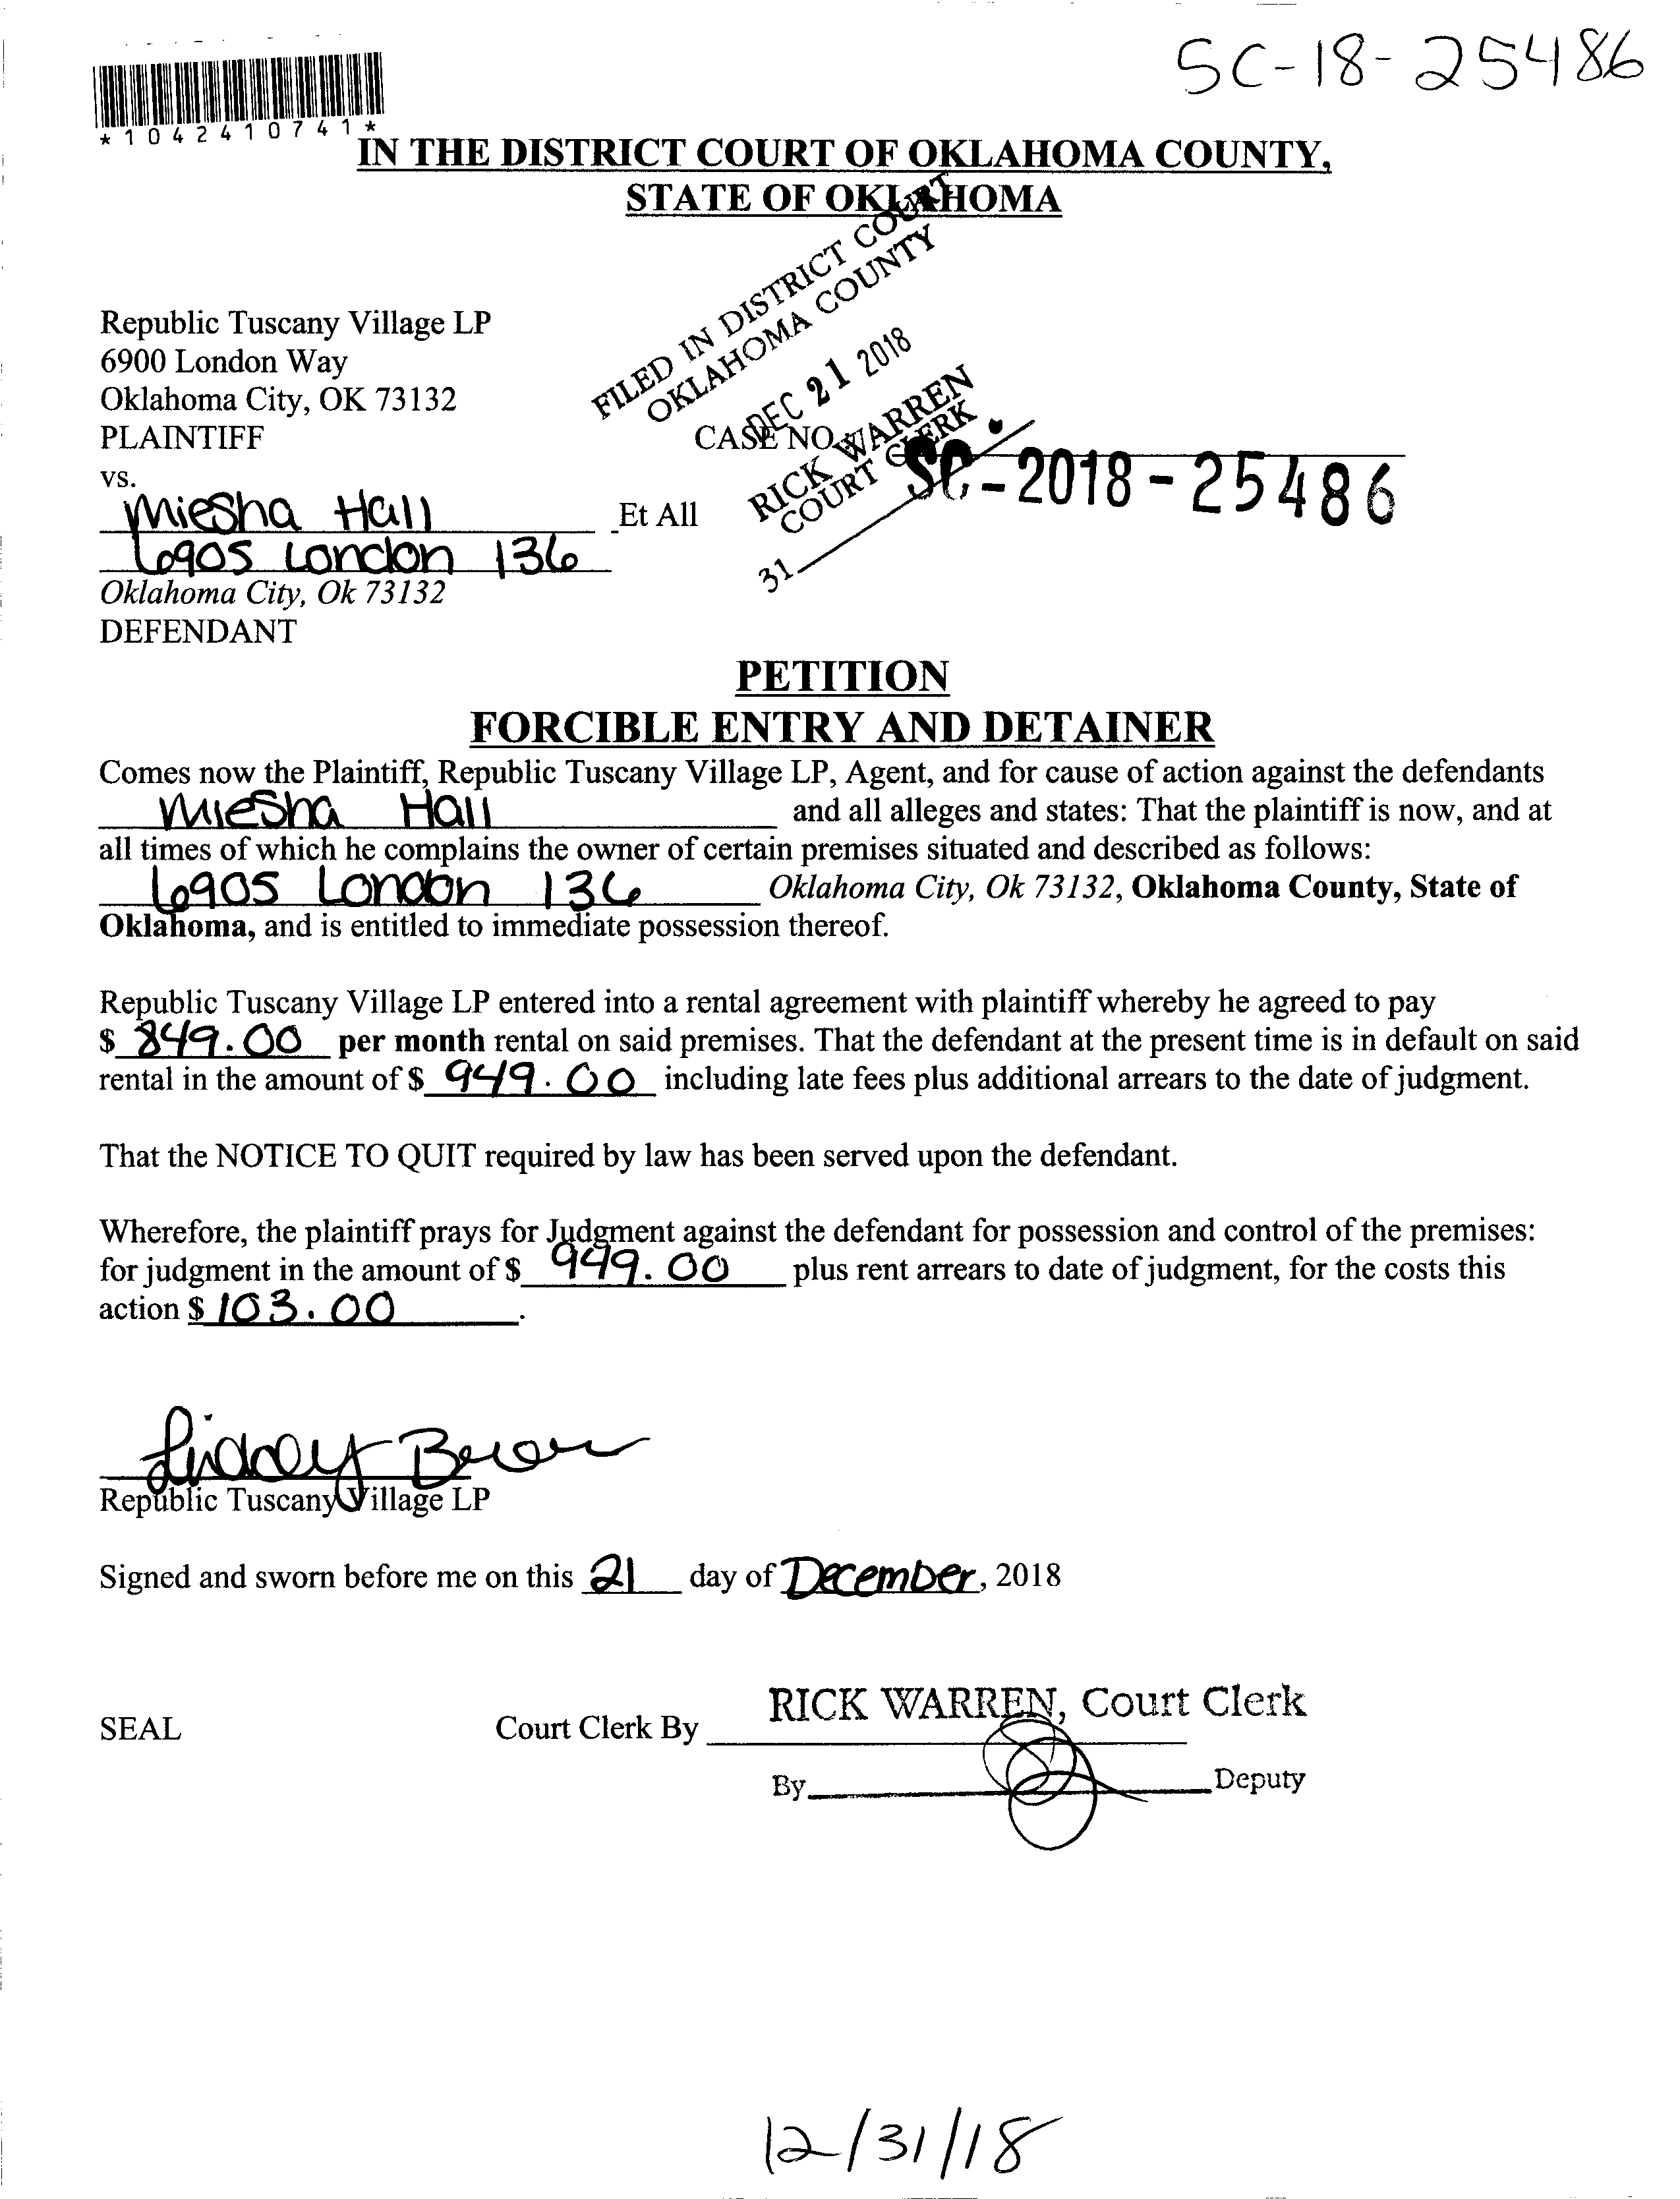 SC-18-25486
*1042410741*
IN THE DISTRICT COURT OF OKLAHOMA COUNTY,
STATE OF OKLAHOMA
FILED IN DISTRICT COURT
OKLAHOMA COUNTY
DEC 21 2018
RICK WARREN
COURT CLERK
31
Republic Tuscany Village LP
6900 London Way
Oklahoma City, OK 73132
PLAINTIFF
CASE NO.
SC-2018-25486
vs.
Miesha Hall Et All
6905 London 136
Oklahoma City, Ok 73132
DEFENDANT
PETITION
FORCIBLE ENTRY AND DETAINER
Comes now the Plaintiff, Republic Tuscany Village LP, Agent, and for cause of action against the defendants
Miesha Hall and all alleges and states: That the plaintiff is now, and at
all times of which he complains the owner of certain premises situated and described as follows:
6905 London 136 Oklahoma City, Ok 73132, Oklahoma County, State of
Oklahoma, and is entitled to immediate possession thereof.
Republic Tuscany Village LP entered into a rental agreement with plaintiff whereby he agreed to pay
$ 849.00 per month rental on said premises. That the defendant at the present time is in default on said
rental in the amount of $ 949.00 including late fees plus additional arrears to the date of judgment.
That the NOTICE TO QUIT required by law has been served upon the defendant.
Wherefore, the plaintiff prays for Judgment against the defendant for possession and control of the premises:
for judgment in the amount of $ 949.00 plus rent arrears to date of judgment, for the costs this
action $ 103.00.
Republic Tuscany Village LP
Signed and sworn before me on this 21 day of December, 2018
RICK WARREN, Court Clerk
SEAL Court Clerk By
By Deputy
12/31/18